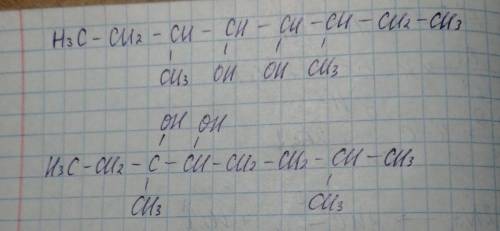 H₃C – CH₂ – CH – CH – CH – CH – CH₂ – CH₃
CH₃ OH OH CH₃
OH OH
H₃C – CH₂ – C – CH – CH₂ – CH₂ – CH – CH₃
CH₃ CH₃